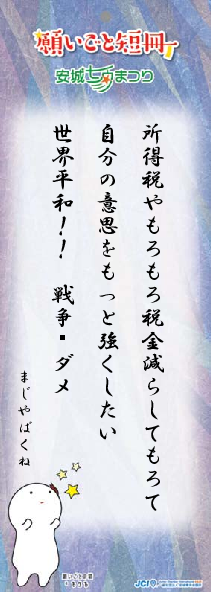 願いごと短冊
安城七夕まつり
所得税やもろもろ税金減らしてもろて
自分の意思をもっと強くしたい
世界平和!! 戦争ダメ
まじやばくね
願いごと短冊
JCI